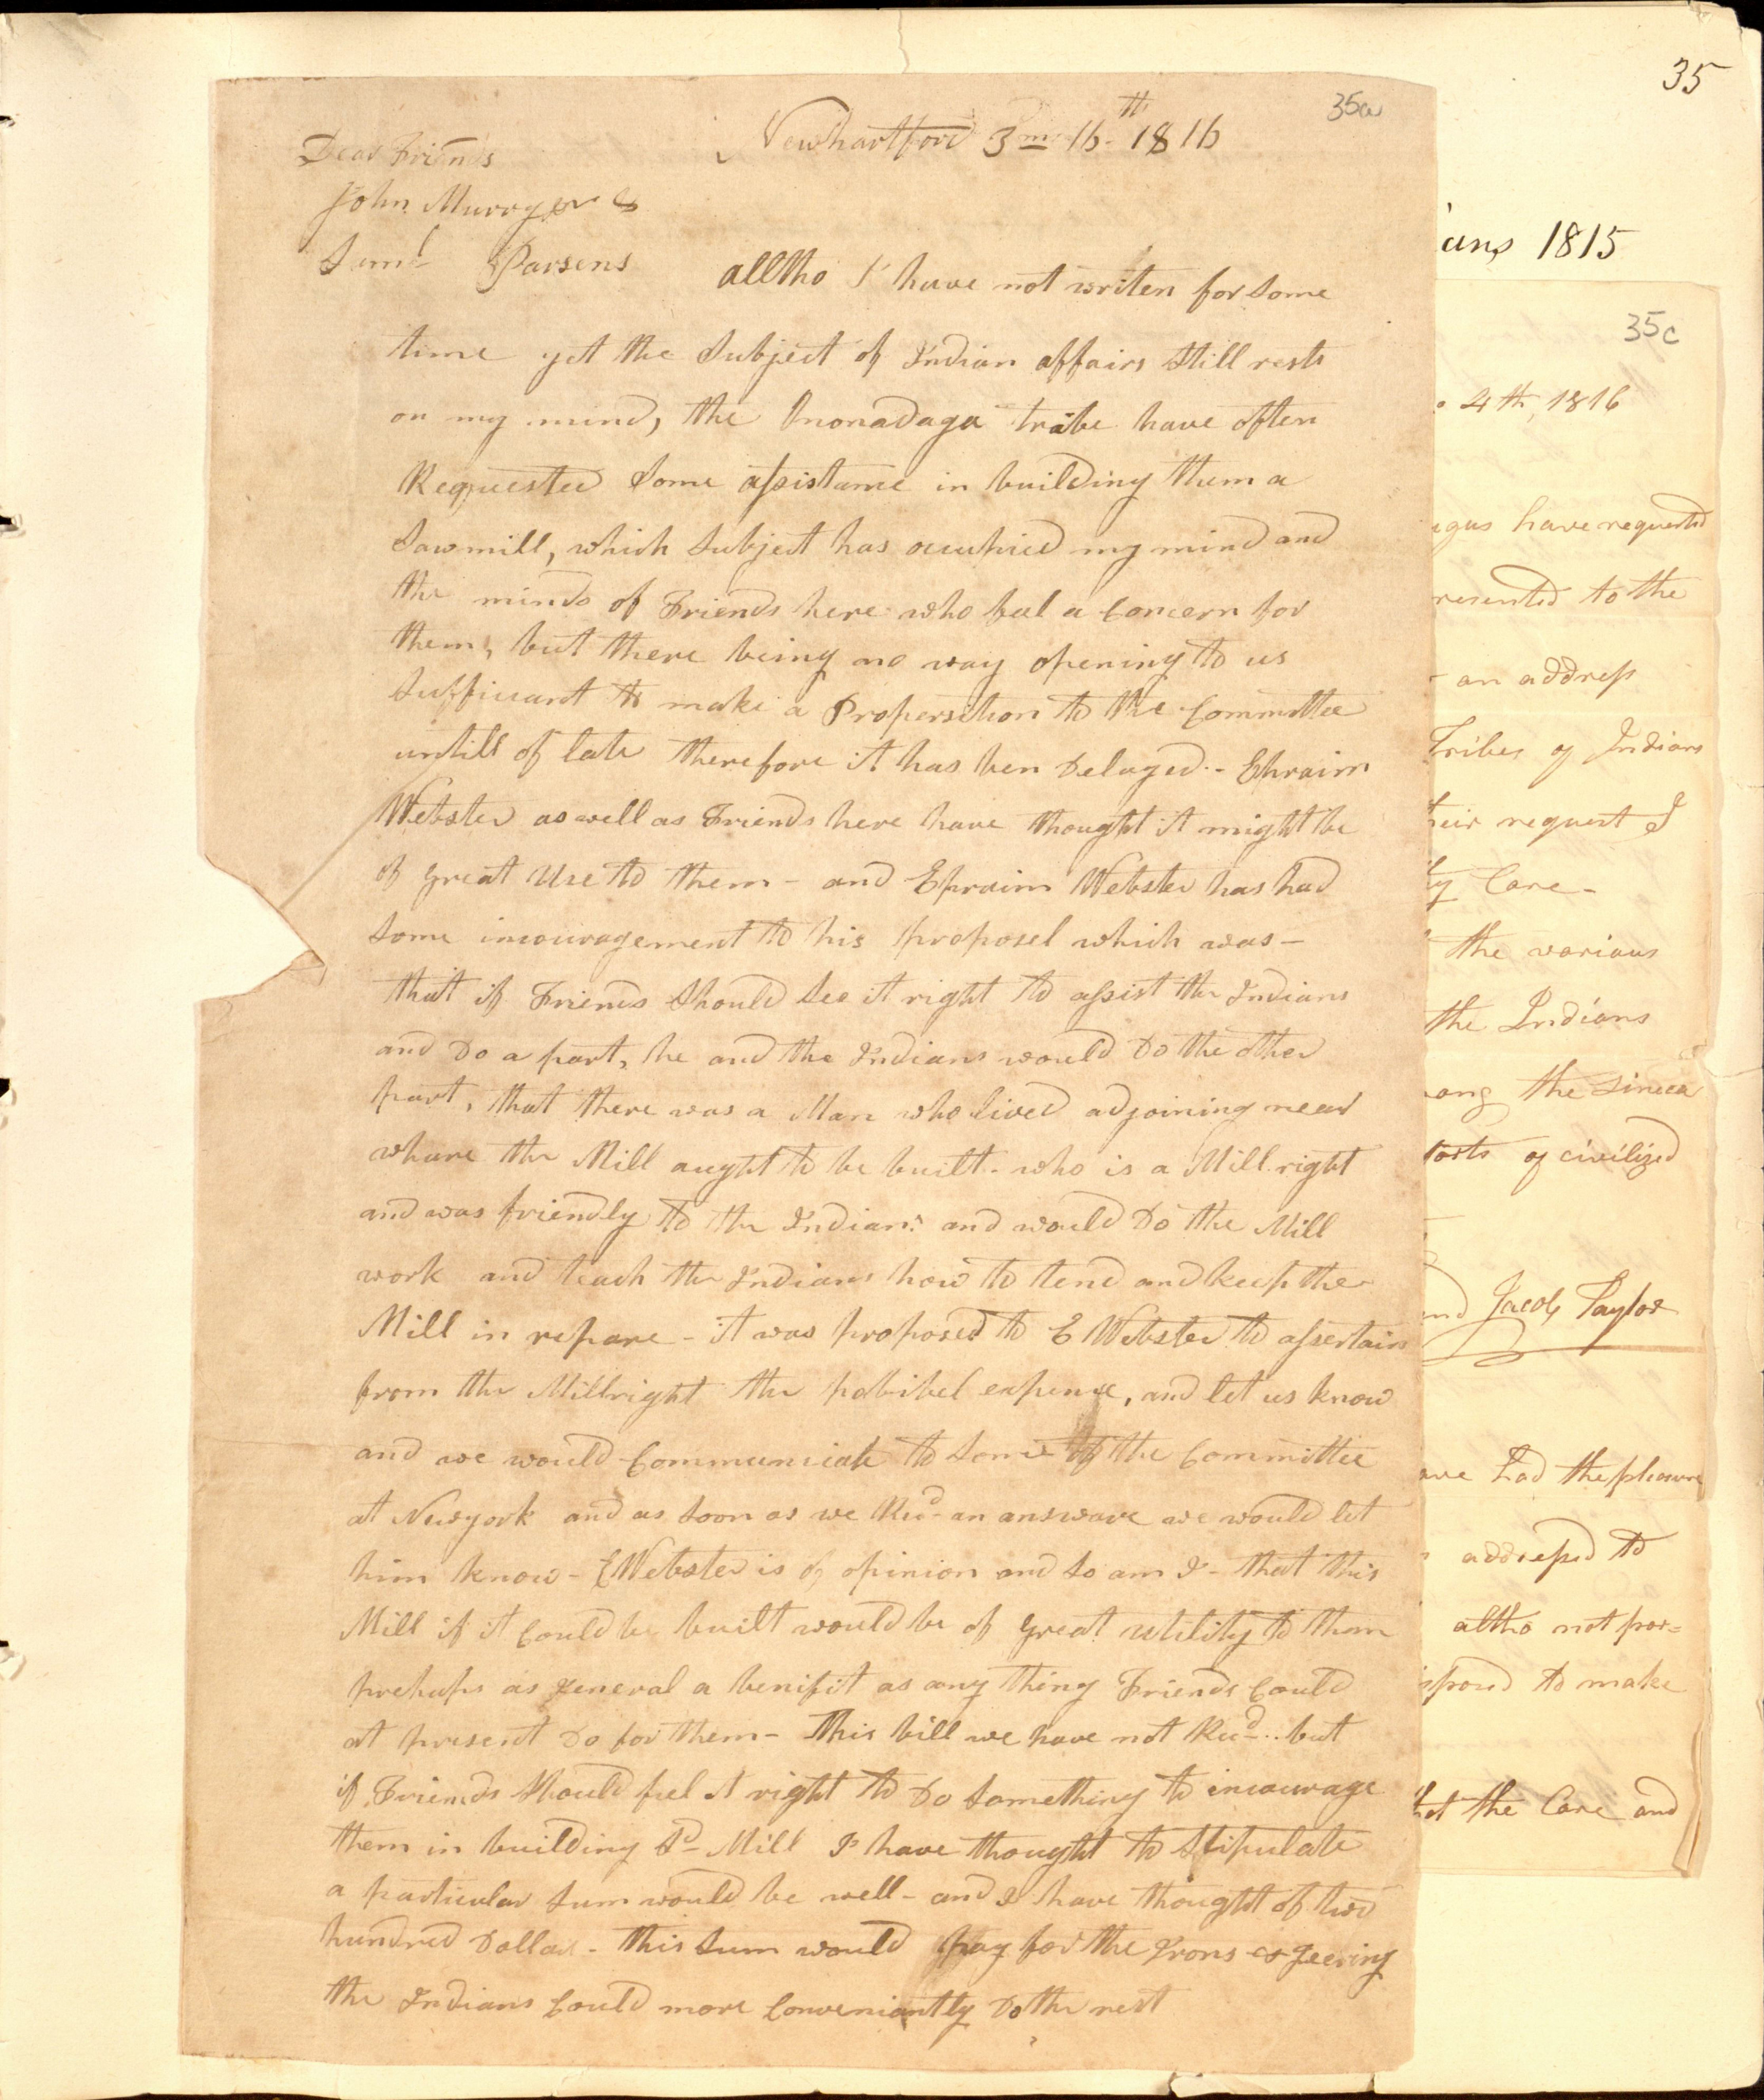 35
35a
Newhartford 3m 16th 1816
Dear Friends
John Murry Jr &
Saml Parsens
alltho I have not writen for some
time yet the Subject of Indian affairs Still rests
on my mind, the Ononadaga tribe have often
Requested Some assistance in building them a
Sawmill, which Subject has occupied my mind and
the minds of Friends here who feel a Concern for
them, but there being no way opening to us
Sufficiant to make a Propersition to the Committee
untill of late therefore it has ben Delayed - Ephraim
Webster as well as Friends here have thought it might be
of great Use to them - and Ephraim Webster has had
Some incouragement to his proposel which was -
that if Friends Should See it right to assist the Indians
and Do a part, he and the Indians would Do the other
part, that there was a Man who lived adjoining near
whare the Mill aught to be built - who is a Mill right
and was friendly to the Indians and would Do the Mill
work and teach the Indians how to tend and keep the
Mill in repare - it was proposed to E Webster to assertain
from the Millright the probibel expence, and let us know
and we would Communicate to Some of the Committee
at Newyork and as Soon as we Recd an answare we would let
him know - E Webster is of opinion and So am I - that this
Mill if it Could be built would be of great utility to them
prehaps as general a benifit as any thing Friends Could
at present Do for them - this bill we have not Recd - but
if Friends Should feel it right to Do Something to incourage
them in building Sd Mill I have thought to Stipulate
a particular Sum would be well - and I have thought of two
hundred Dollars - this Sum would pay for the Irons & geering
the Indians Could more Conveniantly Do the rest
ians 1815
35c
4th, 1816
gas have requested
resented to the
an address
Tribes of Indians
their request I
Care -
the various
the Indians
ong the Sineca
of civilized
Jacob Taylor
ave had the pleasure
addressed to
altho not par=
to make
the Care and